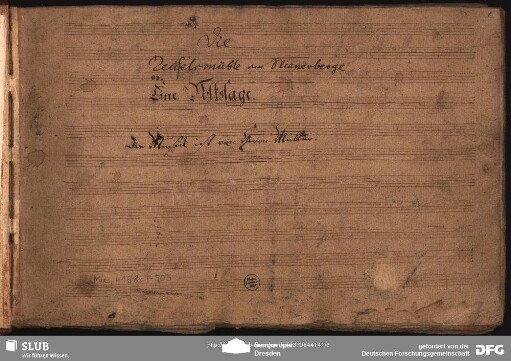 Die
Teufelsmühle am Wienerberge
oder
Eine Volkssage.
Die Musick ist von Herrn Müller.
1
SLUB
Wir führen Wissen.
Dresden
gefördert von der
Deutschen Forschungsgemeinschaft
DFG